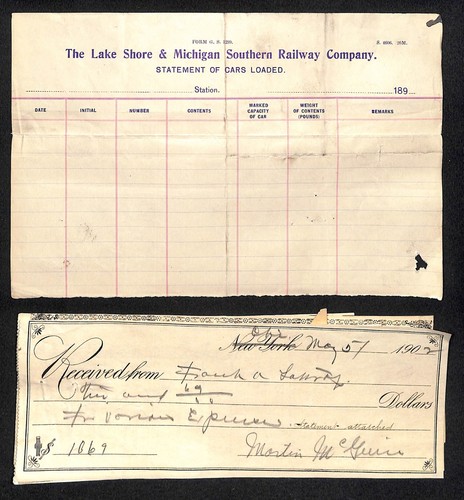 The Lake Shore & Michigan Southern Railway Company.
STATEMENT OF CARS LOADED.
Station. 189
DATE INITIAL NUMBER CONTENTS MARKED CAPACITY OF CAR WEIGHT OF CONTENTS (POUNDS) REMARKS
New York May 5 1902
Received from Frank A
Ten and 69 Dollars
For Various Expenses. Statement attached
$ 1069 Martin McGuire